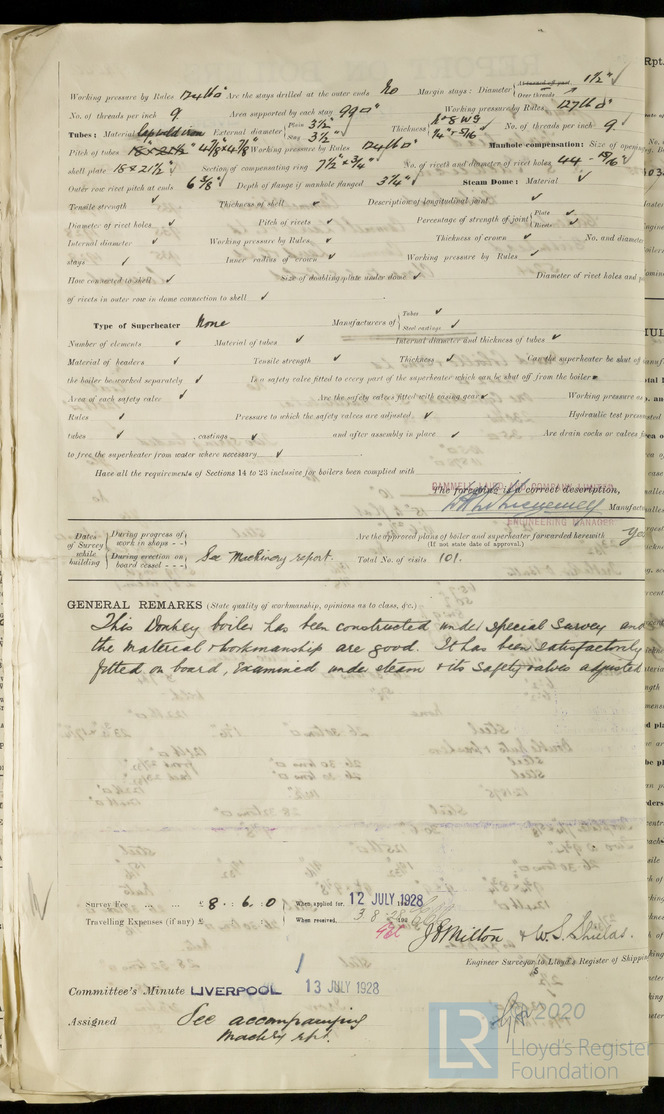 Working pressure by Rules 124 lb □" Are the stays drilled at the outer ends No Margin stays: Diameter { At turned off part, Over threads 1½" ✓
No. of threads per inch 9. Area supported by each stay 99 □" Working pressure by Rules 127 lb □"
Tubes: Material Lapwelded iron External diameter { Plain 3½" Stay 3½" Thickness { 8 W G ¼" + 5/16" No. of threads per inch 9.
Pitch of tubes 4⅞ x 4⅞" Working pressure by Rules 124 lb □" Manhole compensation: Size of
shell plate 18 x 21½" ✓ Section of compensating ring 7½" x ¾" No. of rivets and diameter of rivet holes 44 - 15/16"
Outer row rivet pitch at ends 6⅝" Depth of flange if manhole flanged 3¼" Steam Dome: Material ✓
Tensile strength ✓ Thickness of shell ✓ Description of longitudinal joint ✓
Diameter of rivet holes ✓ Pitch of rivets ✓ Percentage of strength of joint { Plate ✓ Rivets ✓
Internal diameter ✓ Working pressure by Rules ✓ Thickness of crown ✓ No. and diameter
stays ✓ Inner radius of crown ✓ Working pressure by Rules ✓
How connected to shell ✓ Size of doubling plate under dome ✓ Diameter of rivet holes and
of rivets in outer row in dome connection to shell ✓
Type of Superheater None Manufacturers of { Tubes ✓ Steel castings ✓
Number of elements ✓ Material of tubes ✓ Internal diameter and thickness of tubes ✓
Material of headers ✓ Tensile strength ✓ Thickness ✓ Can the superheater be shut of
the boiler be worked separately ✓ Is a safety valve fitted to every part of the superheater which can be shut off from the boiler
Area of each safety valve ✓ Are the safety valves fitted with easing gear ✓ Working pressure
Rules ✓ Pressure to which the safety valves are adjusted ✓ Hydraulic test
tubes ✓ ; castings ✓ and after assembly in place ✓ Are drain cocks or valves
to free the superheater from water where necessary ✓
Have all the requirements of Sections 14 to 23 inclusive for boilers been complied with
CAMMELL LAIRD & COMPANY LIMITED
The foregoing is a correct description,
Manufact
ENGINEERING MANAGER
Dates of Survey while building { During progress of work in shops - - } { During erection on board vessel - - - } See Machinery report.
Are the approved plans of boiler and superheater forwarded herewith Yes
(If not state date of approval.)
Total No. of visits 101.
GENERAL REMARKS (State quality of workmanship, opinions as to class, &c.)
This Donkey boiler has been constructed under special Survey and
the material & workmanship are good. It has been satisfactorily
fitted on board, Examined under steam & its Safety valves adjusted
Survey Fee ... ... £ 8 : 6 : 0 When applied for, 12 JULY, 1928
Travelling Expenses (if any) £ : : When received, 3.8.28
J H Milton & W.S. Shields.
Engineer Surveyor to Lloyd's Register of Shipping
s
Committee's Minute LIVERPOOL 13 JULY 1928
Assigned See accompanying
Machy rpt.
2020
LR
Lloyd's Register
Foundation